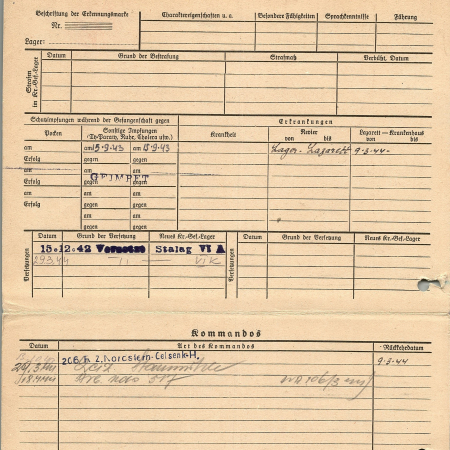 Beschriftung der Erkennungsmarke
Nr.
Lager:
Charaktereigenschaften u. a.
Besondere Fähigkeiten
Sprachkenntnisse
Führung
Strafen im Kr.-Gef.-Lager
Datum
Grund der Bestrafung
Strafmaß
Verbüßt, Datum
Schutzimpfungen während der Gefangenschaft gegen
Erkrankungen
Pocken
Sonstige Impfungen
(Ty-Paraty, Ruhr, Cholera usw.)
Krankheit
Revier
von bis
Lazarett — Krankenhaus
von bis
am
am 15-9-43 am 13-9-43
Lager-Lazarett 9-3-44-
Erfolg gegen gegen
am am am
GEIMPFT
Erfolg gegen gegen
am am am
Erfolg gegen gegen
am am
gegen gegen
Versetzungen
Datum
Grund der Versetzung
Neues Kr.-Gef.-Lager
Datum
Grund der Versetzung
Neues Kr.-Gef.-Lager
15.12.42 Stalag VI A
29.3.44 — " — VI K
Kommandos
Datum
Art des Kommandos
Rückkehrdatum
206 R. Z. Nordstern-Gelsenk-H. 9-3-44